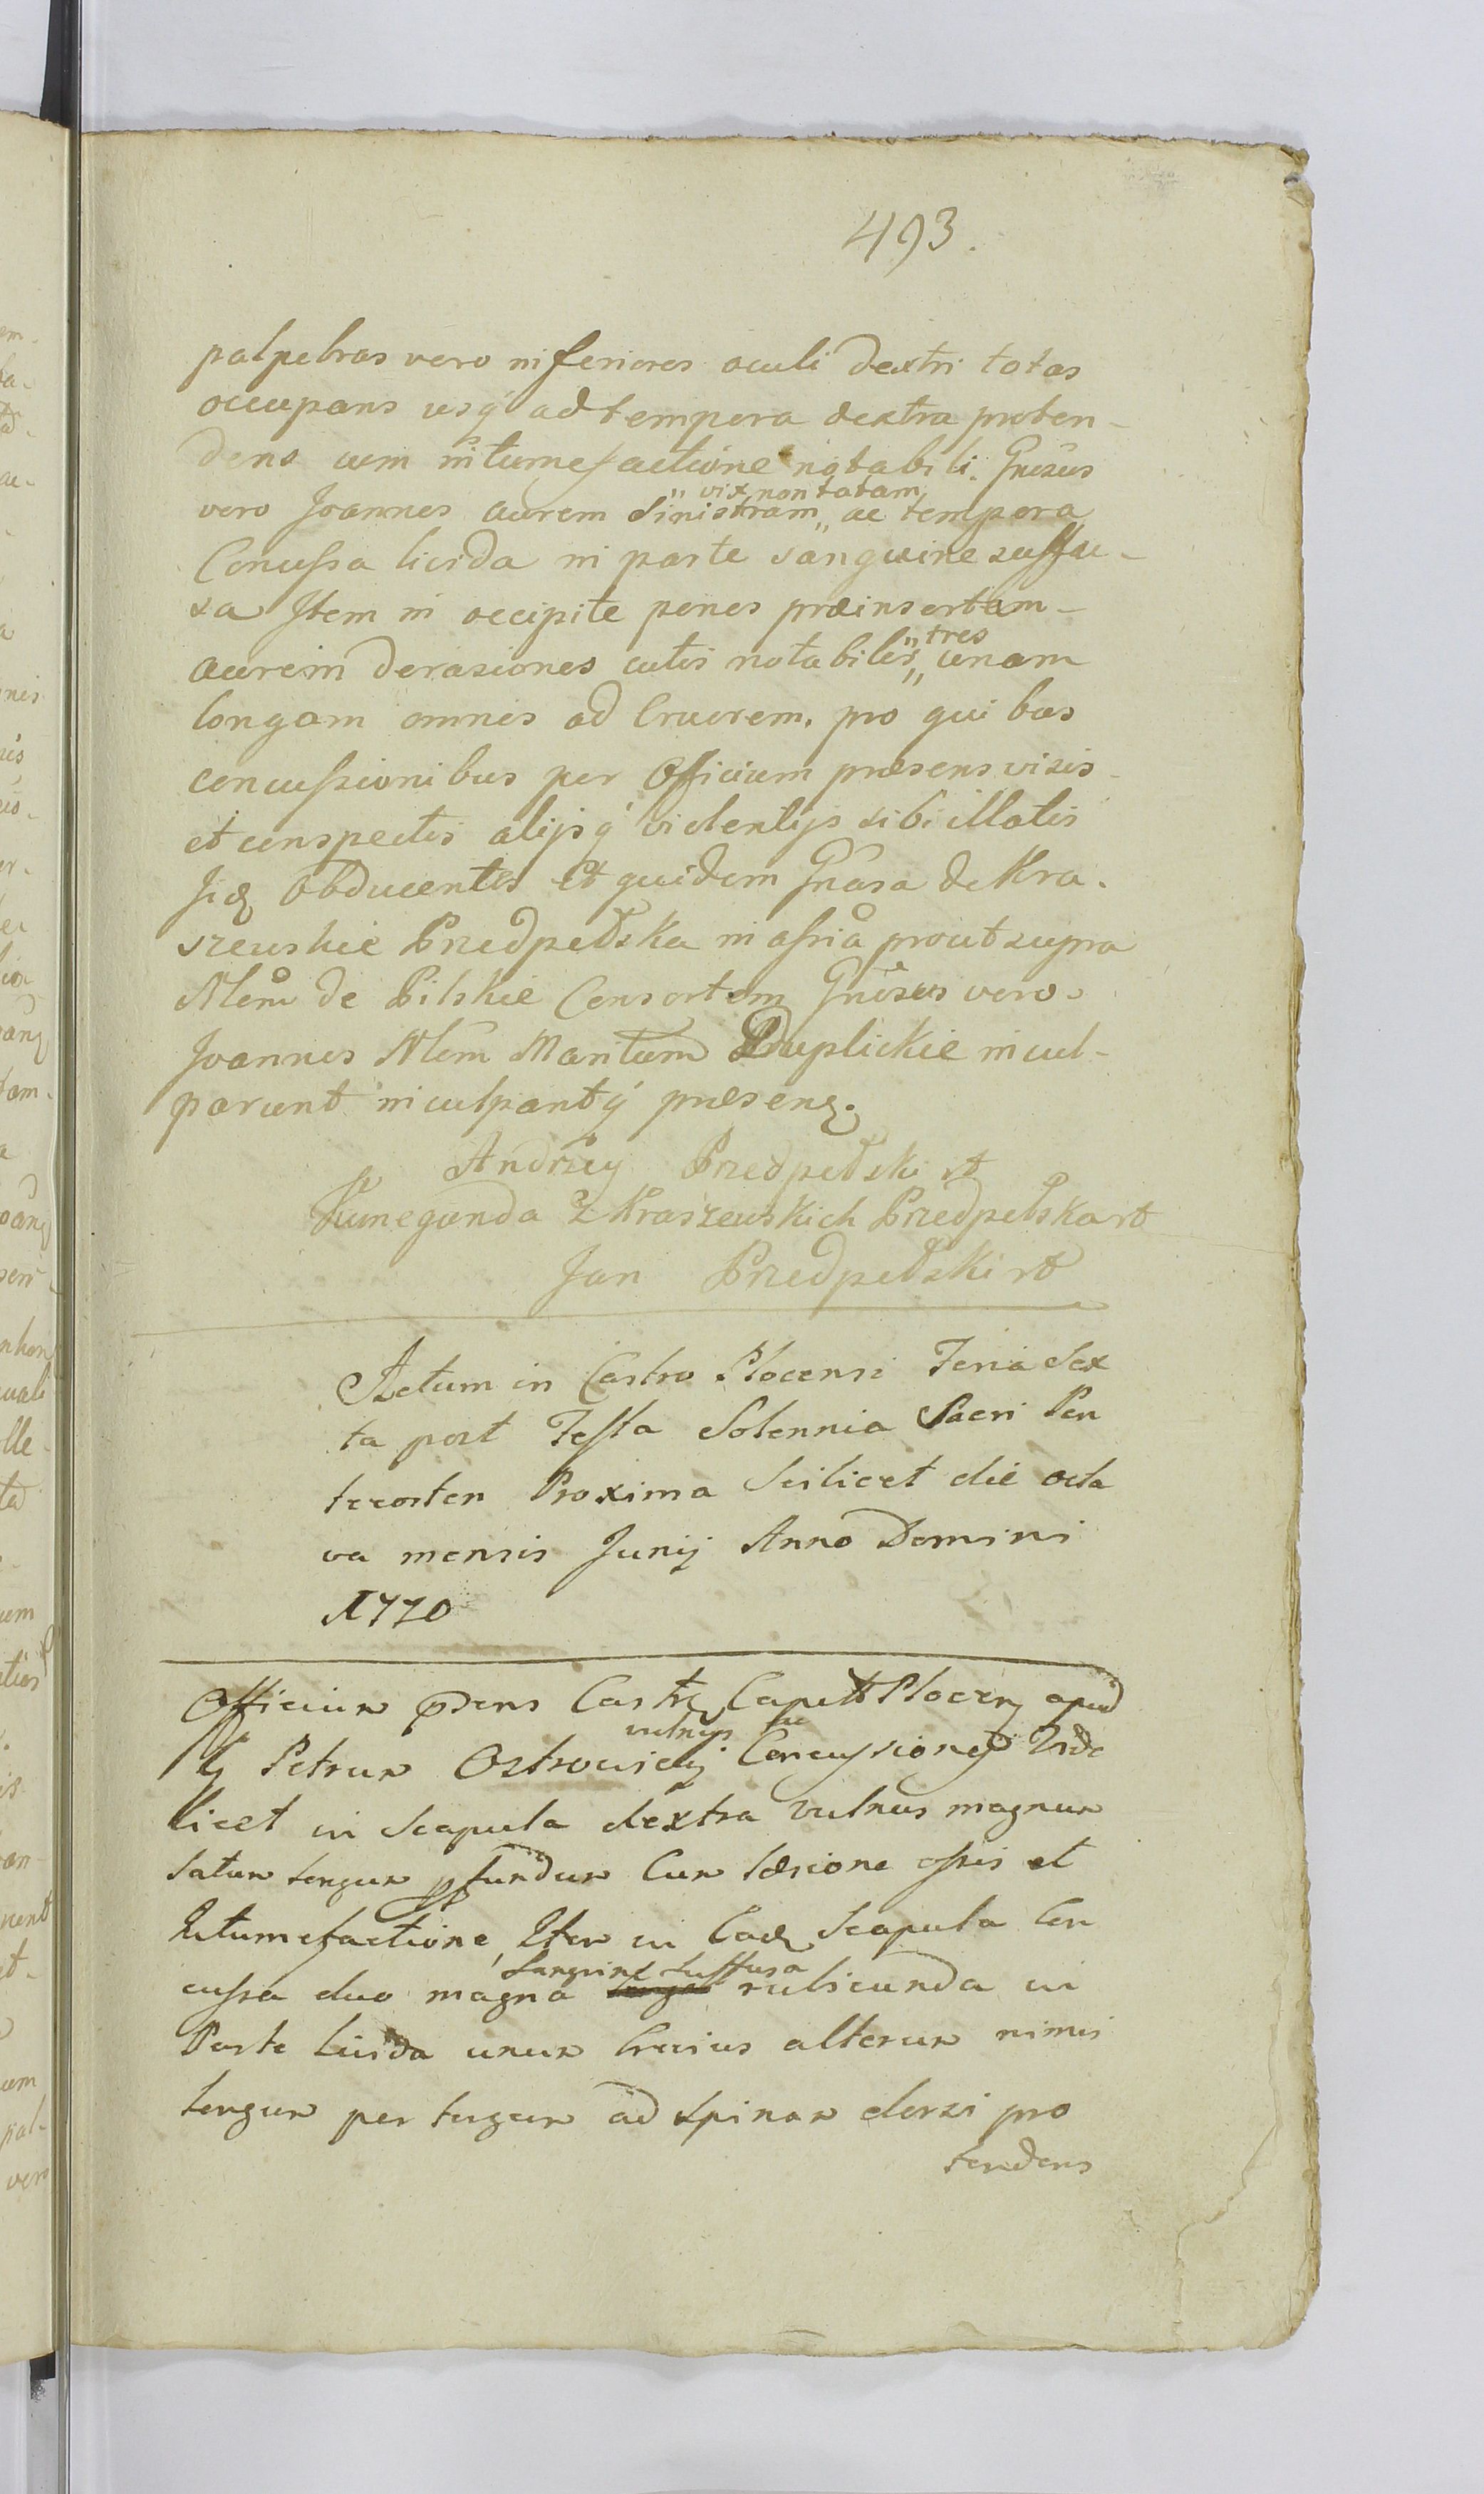 493.
palpebras vero inferiores oculi dextri totas
occupans usq́ ad tempora dextra proten-
dens cum intumefactione notabili. Gnosus
vero Joannes aurem sinistram „ vix non totam „ ac tempora
Concussa livida in parte sanguine suffu-
sa Item in occipite penes præinsertam
aurem derasiones cutis notabiles „ tres „ unam
longam omnes ad Cruorem, pro quibus
concussionibus per Officium præsens visis
et conspectis alijsq́ violentijs sibi illatis
Obducentes et quidem Gnosa de Kra-
szewskie Przedpełska in assia prout supra
Mlem de Pilskie Consortem Gnosus vero
Joannes Mlem Maritum Duplickie incul-
parunt inculpantq́ præsens.
Andrzey Przedpełski
Kunegunda z Kraszewskich Przedpełska
Jan Przedpełski
Actum in Castro Plocensi Feria Sex
ta post Festa Solennia Sacri Pen
tecosten Proxima Scilicet die octa
va mensis Junij Anno Domini
1770
Officium præsens Castr Capit Plocen apud
G Petrum Ostrowicki vulnus ac Concussiones Vide
licet in Scapula dextra vulnus magnum
latum longum profundum Cum læsione ossis et
Intumefactione, Item in Ead Scapula Con
cussa duo magna Sanguine Suffusa rubicunda in
Parte livida unum brevius alterum nimis
longum per tergum ad Spinam dorsi pro
tendens